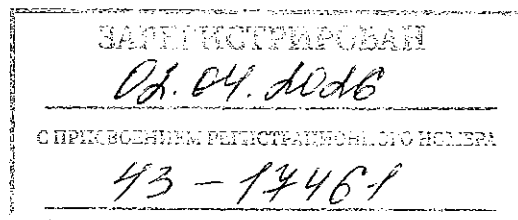 ЗАРЕГИСТРИРОВАН
02.04.2026
С ПРИСВОЕНИЕМ РЕГИСТРАЦИОННОГО НОМЕРА
43-17461